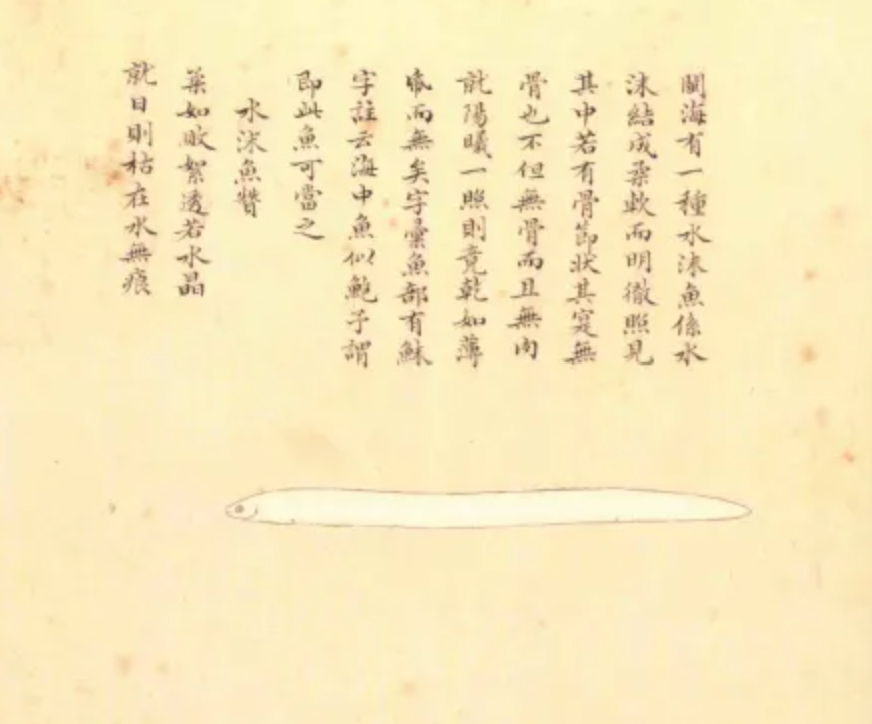 閩海有一種水沫魚係水
沫結成柔軟而明徹照見
其中若有骨節狀其寔無
骨也不但無骨而且無肉
就陽曦一照則竟乾如薄
紙而無矣字彙魚部有䱅
字註云海中魚似鮑予謂
即此魚可當之
水沫魚贊
葉如敗絮透若水晶
就日則枯在水無痕